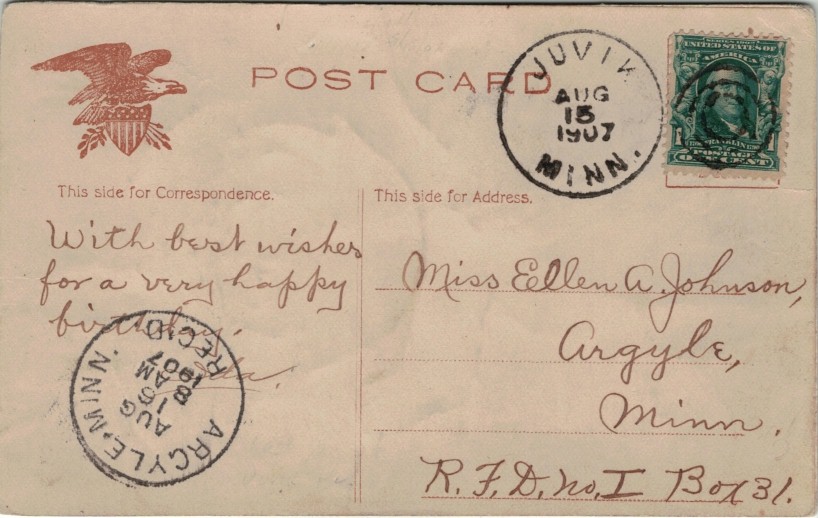 POST CARD
JUVIK
AUG
15
1907
MINN.
SERIES 1902
UNITED STATES OF
AMERICA
1 FRANKLIN 1
POSTAGE
ONE CENT
This side for Correspondence.
This side for Address.
With best wishes
for a very happy
birthday.
Ida.
ARGYLE, MINN.
AUG
16
8 AM
1907
REC'D
Miss Ellen A. Johnson,
Argyle,
Minn.
R.F.D. No. I Box 31.